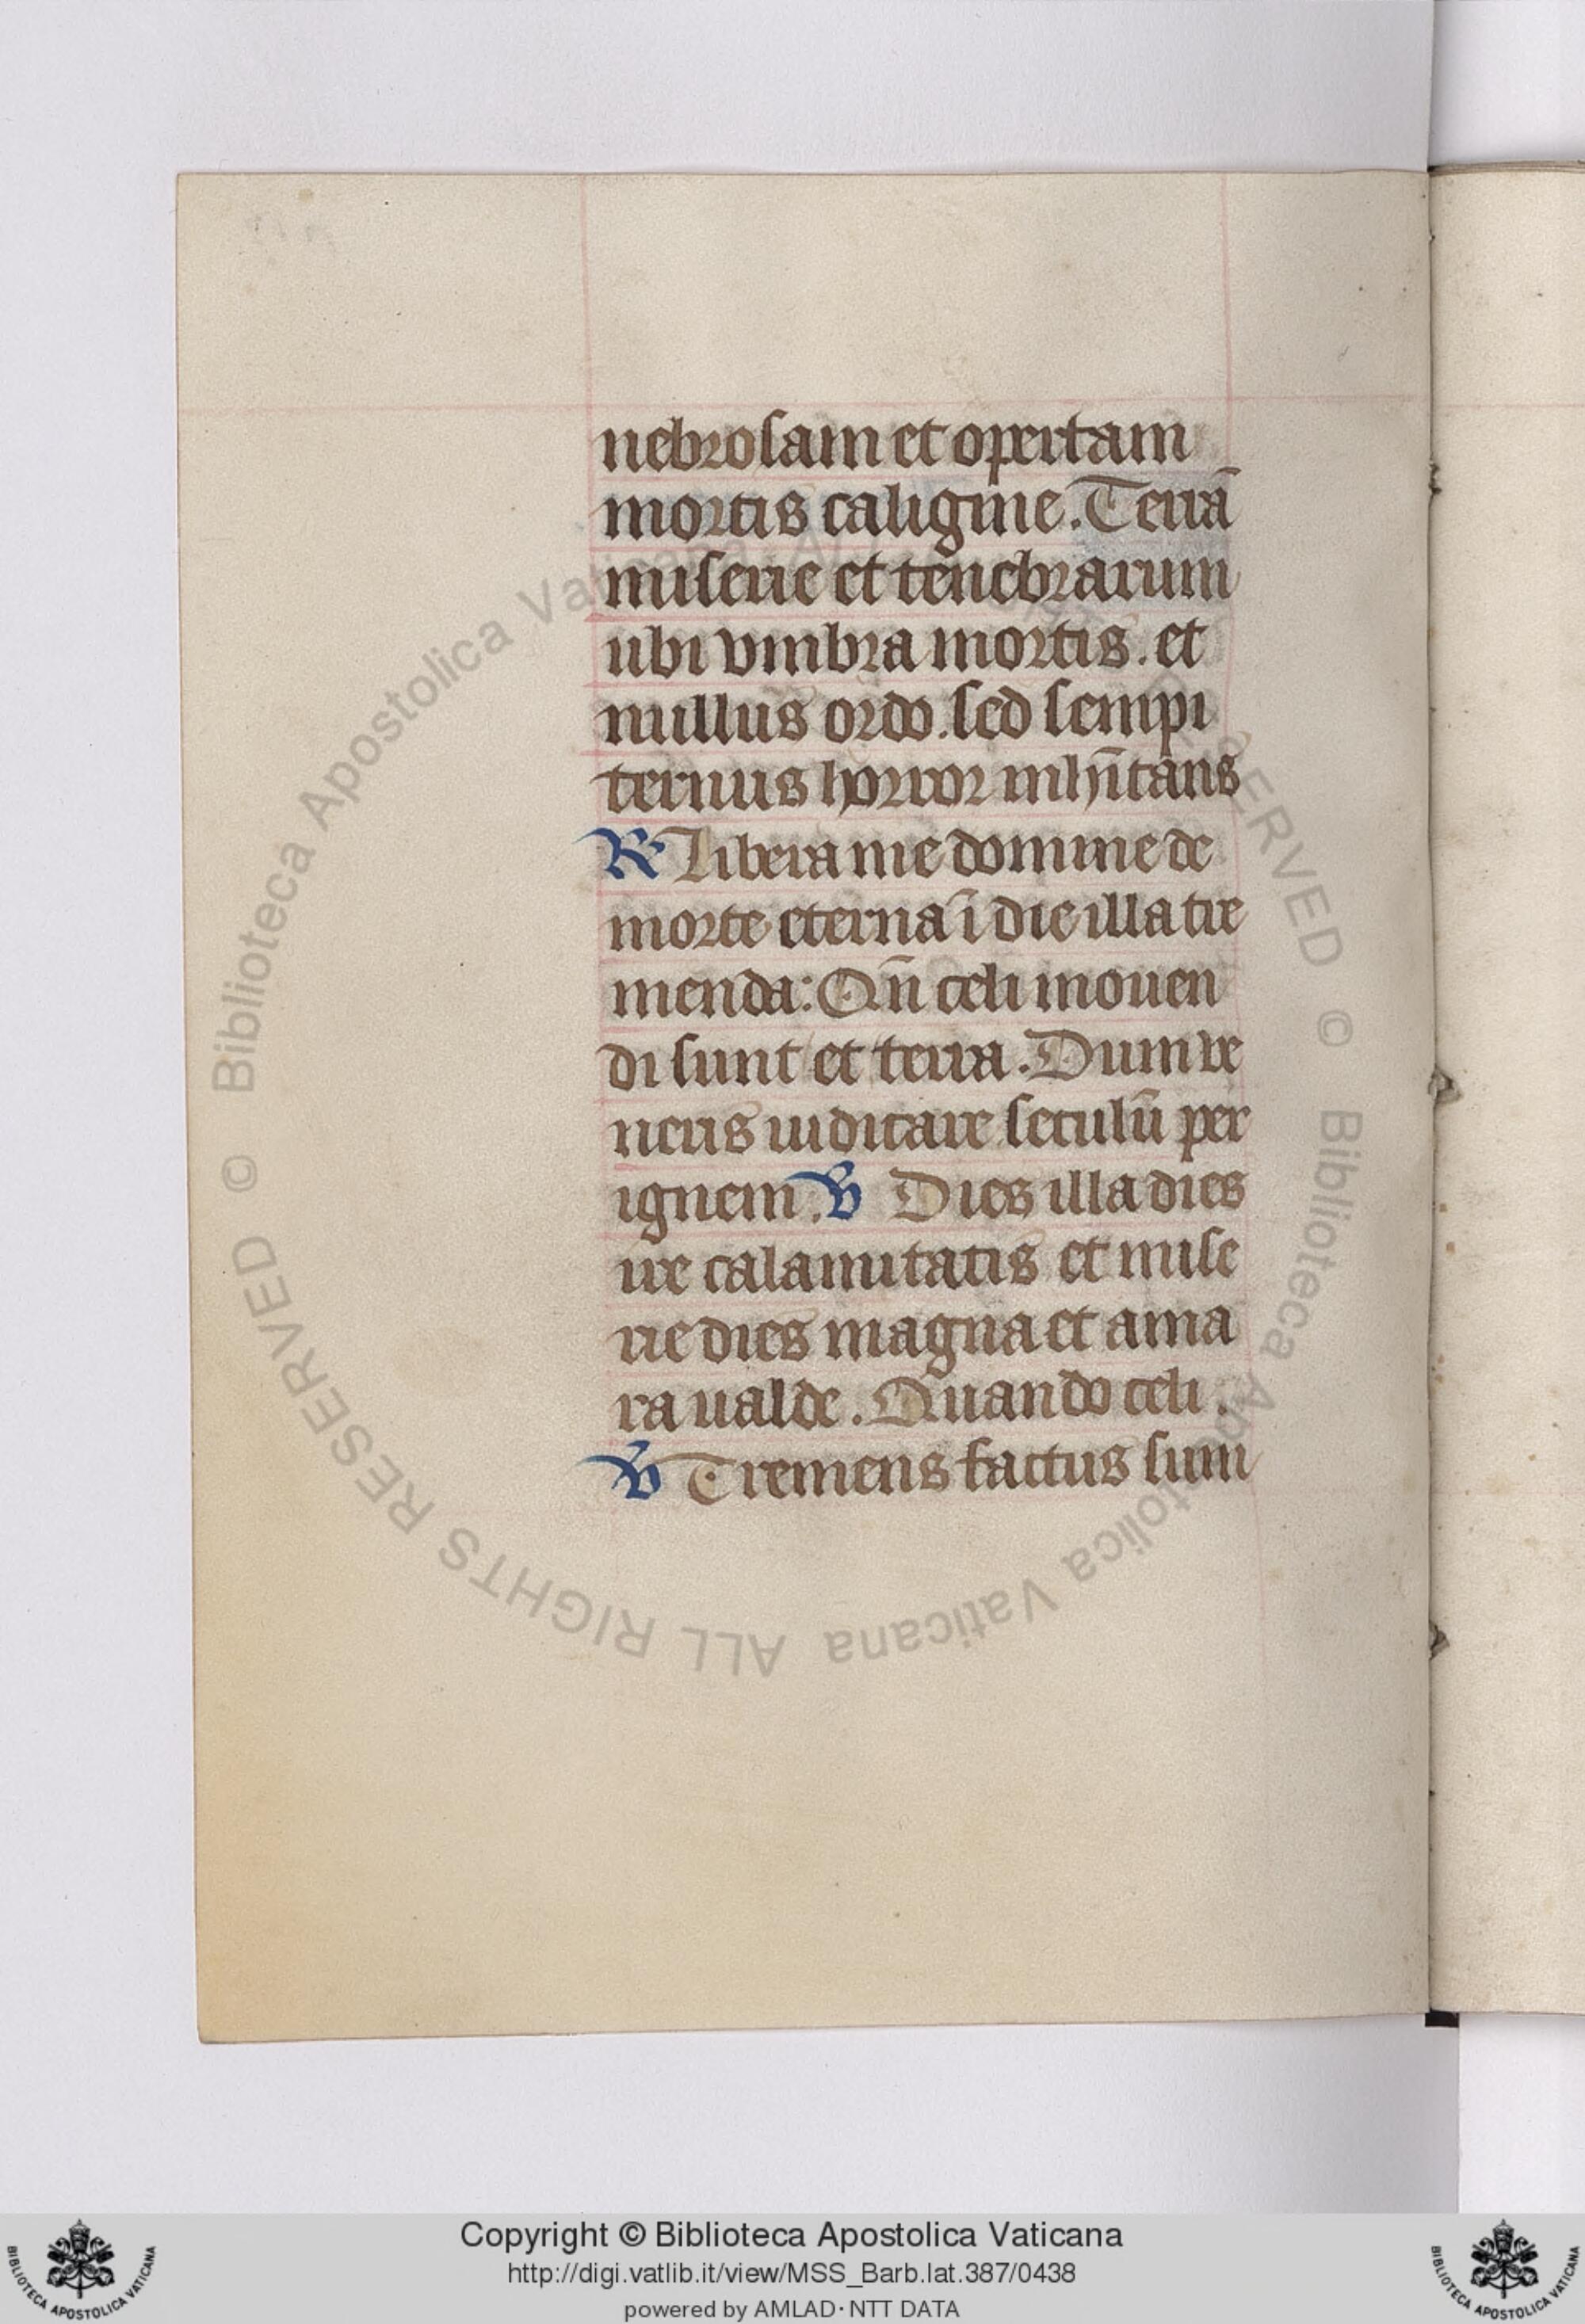 nebrosam et opertam
mortis caligine. Terrā
miserie et tenebrarum
ubi vmbra mortis. et
nullus ordo. sed sempi
ternus horror inhītans
R Libera me domine de
morte eterna ī die illa tre
menda: Qn̄ celi mouen
di sunt et terra. Dum ve
neris iudicare seculū per
ignem. V Dies illa dies
ire calamitatis et mise
rie dies magna et ama
ra ualde. Quando celi.
V Tremens factus sum
© Biblioteca Apostolica Vaticana ALL RIGHTS RESERVED © Biblioteca Apostolica Vaticana ALL RIGHTS RESERVED
Copyright © Biblioteca Apostolica Vaticana
http://digi.vatlib.it/view/MSS_Barb.lat.387/0438
powered by AMLAD · NTT DATA
BIBLIOTECA APOSTOLICA VATICANA
BIBLIOTECA APOSTOLICA VATICANA